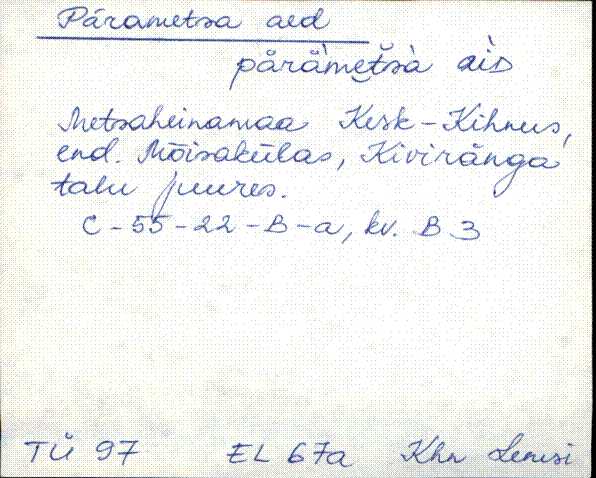 Pärametsa aed
pärämetsà àis
Metsaheinamaa Kesk-Kihnus,
end. Mõisakülas, Kiviränga
talu juures.
C-55-22-B-a, kv. B 3
TÜ 97 EL 67a Khn Lemsi